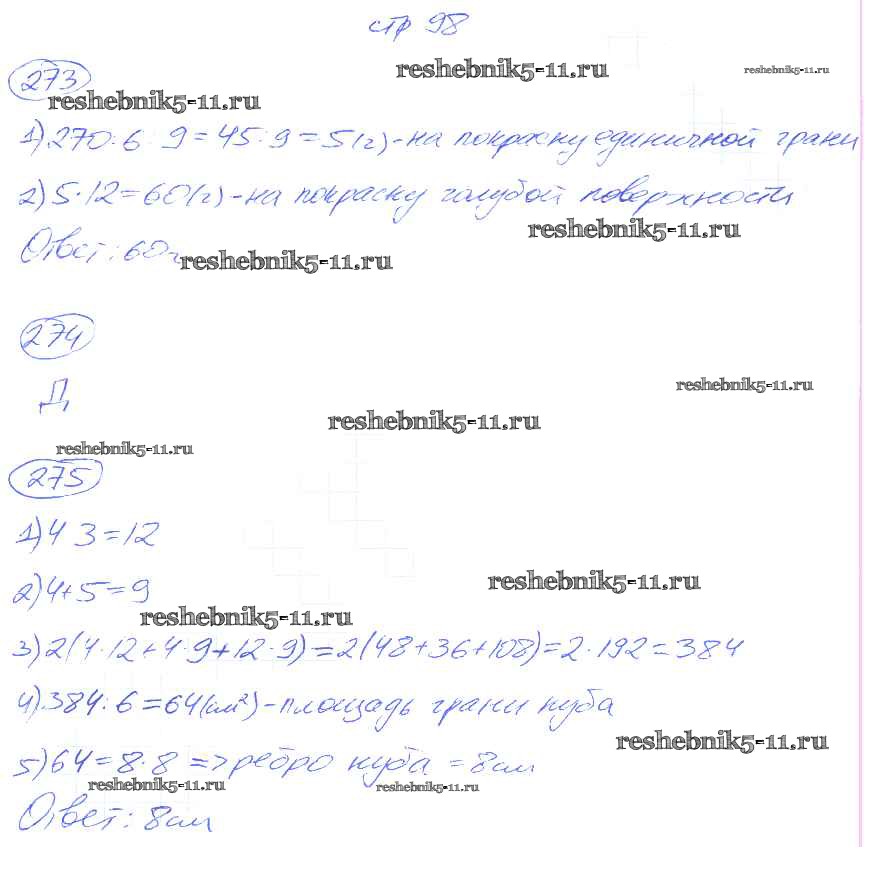 стр 98
reshebnik5-11.ru
reshebnik5-11.ru
273
reshebnik5-11.ru
1) 270:6:9=45:9=5(г)-на покраску единичной грани
2) 5·12=60(г)-на покраску голубой поверхности
reshebnik5-11.ru
Ответ: 60г
reshebnik5-11.ru
274
reshebnik5-11.ru
Д
reshebnik5-11.ru
reshebnik5-11.ru
275
1) 4 3=12
reshebnik5-11.ru
2) 4+5=9
reshebnik5-11.ru
3) 2(4·12+4·9+12·9)=2(48+36+108)=2·192=384
4) 384:6=64(см²)-площадь грани куба
reshebnik5-11.ru
5) 64=8·8=>ребро куба =8см
reshebnik5-11.ru
reshebnik5-11.ru
Ответ: 8см